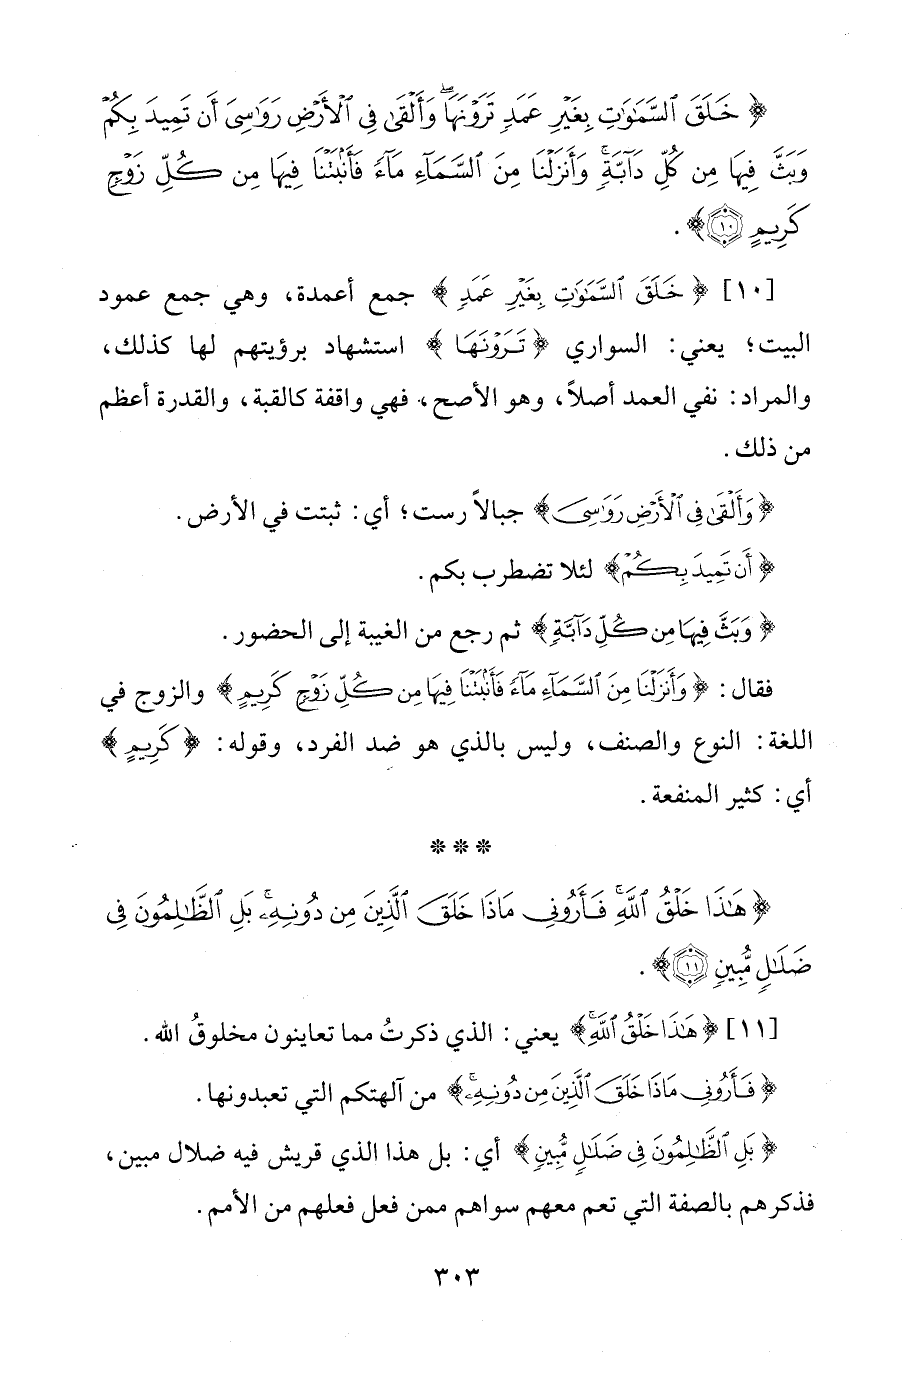 ﴿ خَلَقَ ٱلسَّمَٰوَٰتِ بِغَيْرِ عَمَدٍ تَرَوْنَهَاۖ وَأَلْقَىٰ فِى ٱلْأَرْضِ رَوَٰسِىَ أَن تَمِيدَ بِكُمْ
وَبَثَّ فِيهَا مِن كُلِّ دَآبَّةٍۚ وَأَنزَلْنَا مِنَ ٱلسَّمَآءِ مَآءً فَأَنۢبَتْنَا فِيهَا مِن كُلِّ زَوْجٍ
كَرِيمٍ ١٠﴾ .
[١٠] ﴿ خَلَقَ ٱلسَّمَٰوَٰتِ بِغَيْرِ عَمَدٍ ﴾ جمع أعمدة، وهي جمع عمود
البيت؛ يعني: السواري ﴿ تَرَوْنَهَا ﴾ استشهاد برؤيتهم لها كذلك،
والمراد: نفي العمد أصلاً، وهو الأصح، فهي واقفة كالقبة، والقدرة أعظم
من ذلك .
﴿وَأَلْقَىٰ فِى ٱلْأَرْضِ رَوَٰسِىَ﴾ جبالاً رست؛ أي: ثبتت في الأرض.
﴿ أَن تَمِيدَ بِكُمْ﴾ لئلا تضطرب بكم.
﴿ وَبَثَّ فِيهَا مِن كُلِّ دَآبَّةٍ﴾ ثم رجع من الغيبة إلى الحضور.
فقال: ﴿ وَأَنزَلْنَا مِنَ ٱلسَّمَآءِ مَآءً فَأَنۢبَتْنَا فِيهَا مِن كُلِّ زَوْجٍ كَرِيمٍ﴾ والزوج في
اللغة: النوع والصنف، وليس بالذي هو ضد الفرد، وقوله: ﴿ كَرِيمٍ ﴾
أي: كثير المنفعة .
* * *
﴿ هَٰذَا خَلْقُ ٱللَّهِۚ فَأَرُونِى مَاذَا خَلَقَ ٱلَّذِينَ مِن دُونِهِۦۚ بَلِ ٱلظَّٰلِمُونَ فِى
ضَلَٰلٍ مُّبِينٍ ١١﴾ .
[١١] ﴿هَٰذَا خَلْقُ ٱللَّهِۚ﴾ يعني: الذي ذكرتُ مما تعاينون مخلوقُ الله.
﴿ فَأَرُونِى مَاذَا خَلَقَ ٱلَّذِينَ مِن دُونِهِۦۚ﴾ من آلهتكم التي تعبدونها.
﴿ بَلِ ٱلظَّٰلِمُونَ فِى ضَلَٰلٍ مُّبِينٍ﴾ أي: بل هذا الذي قريش فيه ضلال مبين،
فذكرهم بالصفة التي تعم معهم سواهم ممن فعل فعلهم من الأمم.
٣٠٣